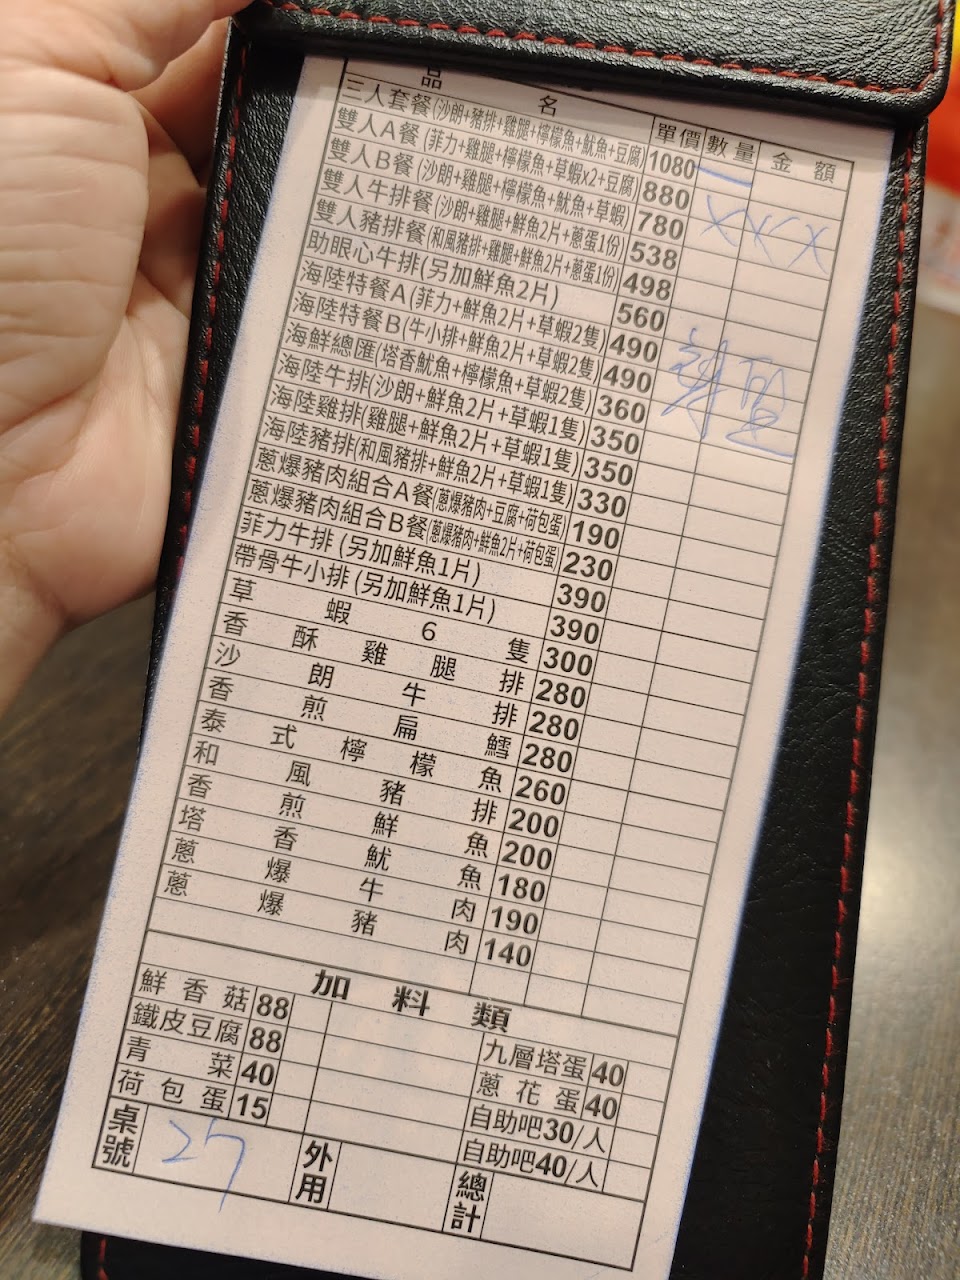 品名 單價 數量 金額
三人套餐(沙朗+豬排+雞腿+檸檬魚+魷魚+豆腐) 1080 一
雙人A餐(菲力+雞腿+檸檬魚+草蝦x2+豆腐) 880
雙人B餐(沙朗+雞腿+檸檬魚+魷魚+草蝦) 780
雙人牛排餐(沙朗+雞腿+鮮魚2片+蔥蛋1份) 538
雙人豬排餐(和風豬排+雞腿+鮮魚2片+蔥蛋1份) 498
肋眼心牛排(另加鮮魚2片) 560
海陸特餐A(菲力+鮮魚2片+草蝦2隻) 490
海陸特餐B(牛小排+鮮魚2片+草蝦2隻) 490
海鮮總匯(塔香魷魚+檸檬魚+草蝦2隻) 360
海陸牛排(沙朗+鮮魚2片+草蝦1隻) 350
海陸雞排(雞腿+鮮魚2片+草蝦1隻) 350
海陸豬排(和風豬排+鮮魚2片+草蝦1隻) 330
蔥爆豬肉組合A餐(蔥爆豬肉+豆腐+荷包蛋) 190
蔥爆豬肉組合B餐(蔥爆豬肉+鮮魚2片+荷包蛋) 230
菲力牛排(另加鮮魚1片) 390
帶骨牛小排(另加鮮魚1片) 390
草蝦6隻 300
香酥雞腿排 280
沙朗牛排 280
香煎扁鱈 280
泰式檸檬魚 260
和風豬排 200
香煎鮮魚 200
塔香魷魚 180
蔥爆牛肉 190
蔥爆豬肉 140
加料類
鮮香菇 88 九層塔蛋 40
鐵皮豆腐 88 蔥花蛋 40
青菜 40 自助吧30/人
荷包蛋 15 自助吧40/人
桌號 27 外用 總計